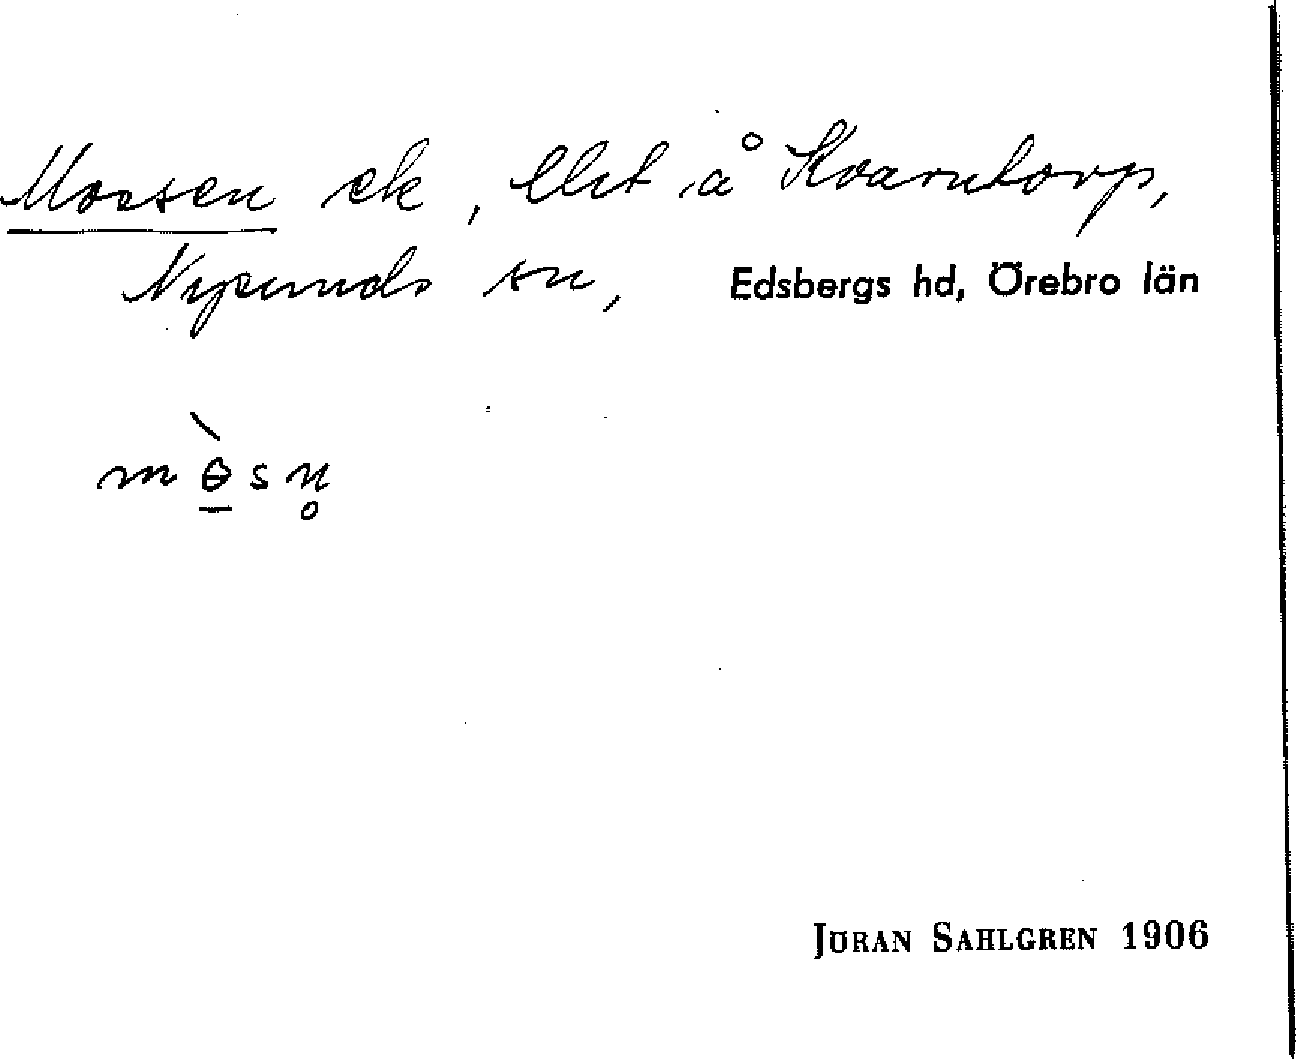 Mossen ek, Elet å Kvarntorp,
Nysunds sn, Edsbergs hd, Örebro län
mɵ̱̀sn̥
JÖRAN SAHLGREN 1906